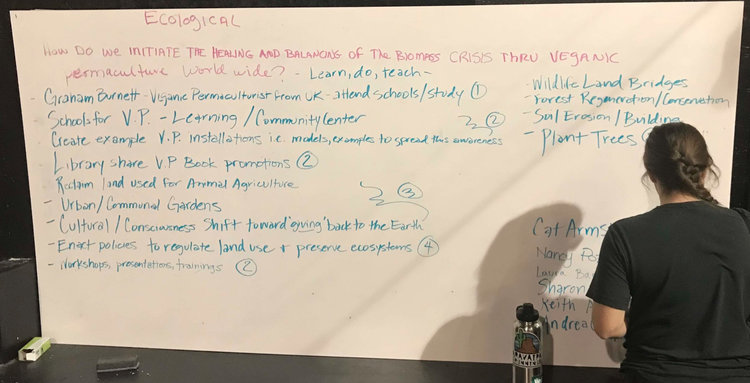 Ecological
How Do we INITIATE THE HEALING AND BALANCING of The BIOMASS CRISIS THRU VEGANIC
permaculture World wide? - Learn, do, teach -
- Graham Burnett - Viganic Permaculturist from UK - attend schools/study ①
Schools for V.P. - Learning / Community Center
Create example V.P. installations i.e. models, examples to spread this awareness ②
- Library share V.P Book promotions ②
- Reclaim land used for Animal Agriculture
- Urban/Communal Gardens ③
- Cultural/Consciousness Shift toward 'giving' back to the Earth
- Enact policies to regulate land use + preserve ecosystems ④
- Workshops, presentations, trainings ②
- Wildlife Land Bridges
- Forest Regeneration/Conservation
- Soil Erosion/Building
- Plant Trees
Cat Arms
Nancy
Laura
Sharon
Keith
Andrea